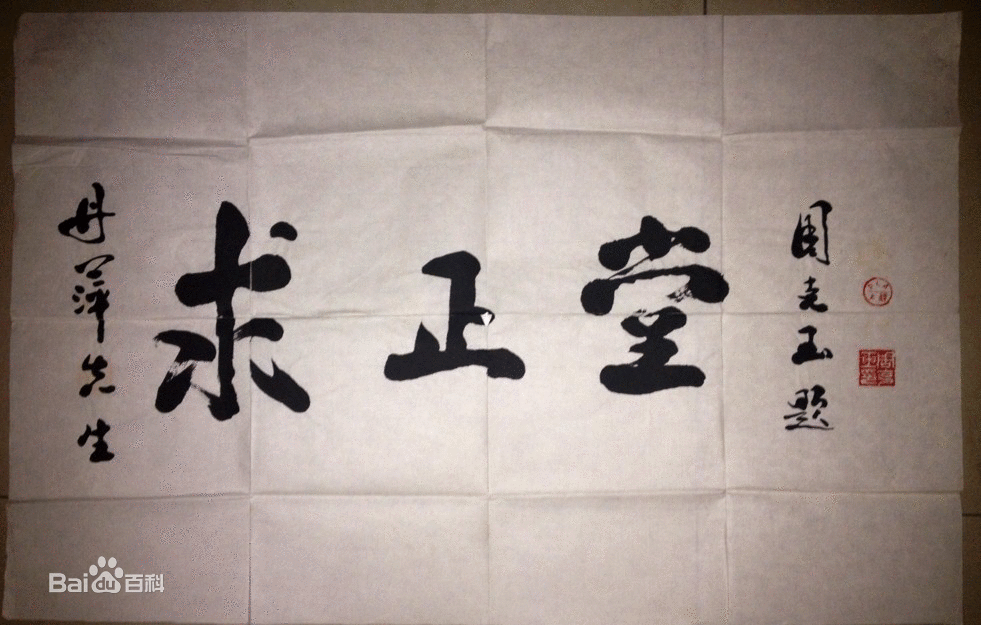 丹萍先生
求正堂
周克玉题
Baidu百科